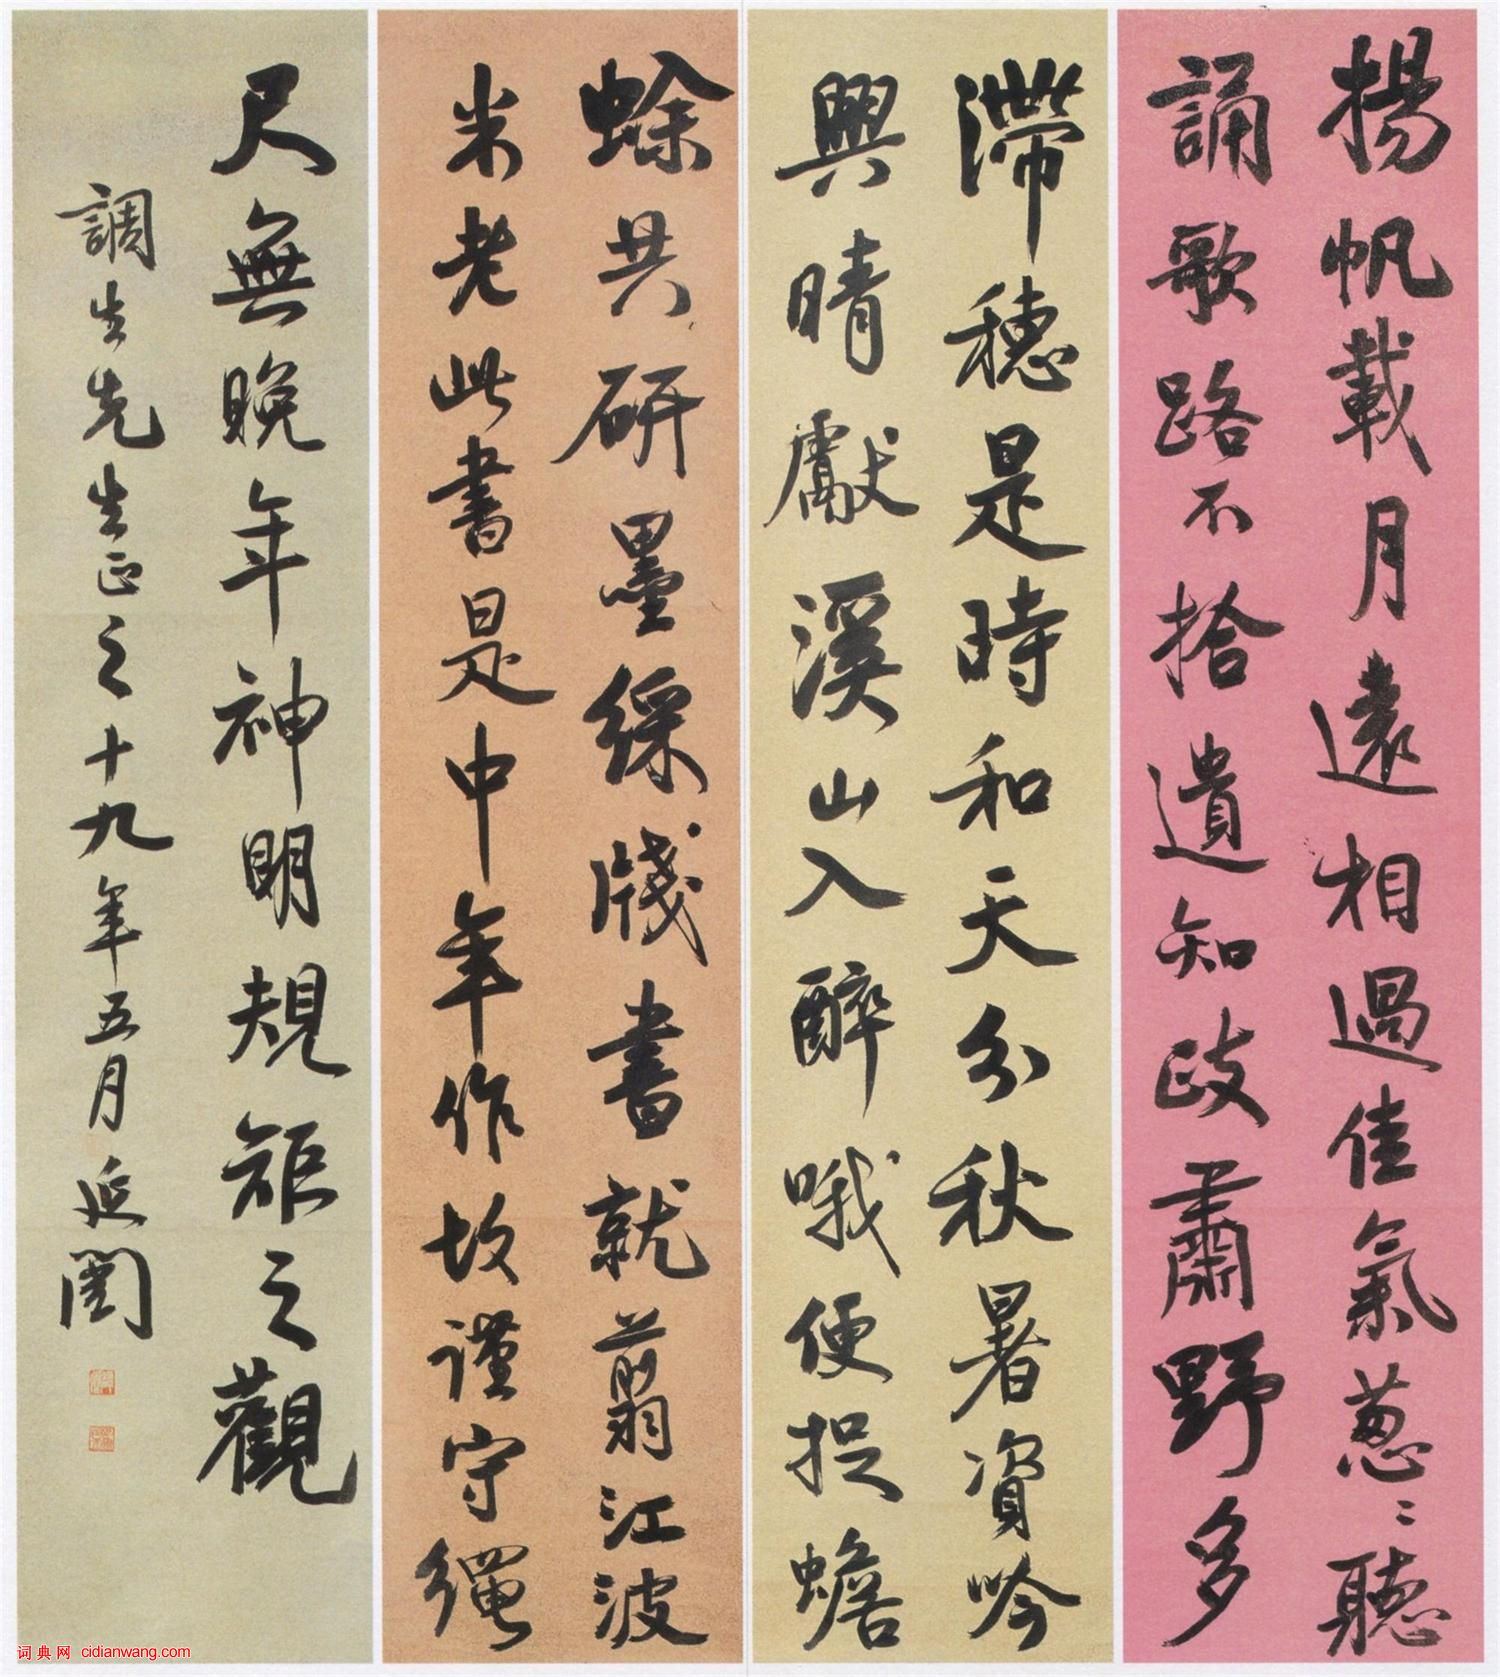 揚帆載月遠相過佳氣蔥〻聽
誦歌路不拾遺知政肅野多
滯穗是時和天分秋暑資吟
興晴獻溪山入醉哦便捉蟾
蜍共研墨綵牋書就翦江波
米老此書是中年作故謹守繩
尺無晚年神明規矩之觀
調生先生正之十九年五月延闓
词典网 cidianwang.com